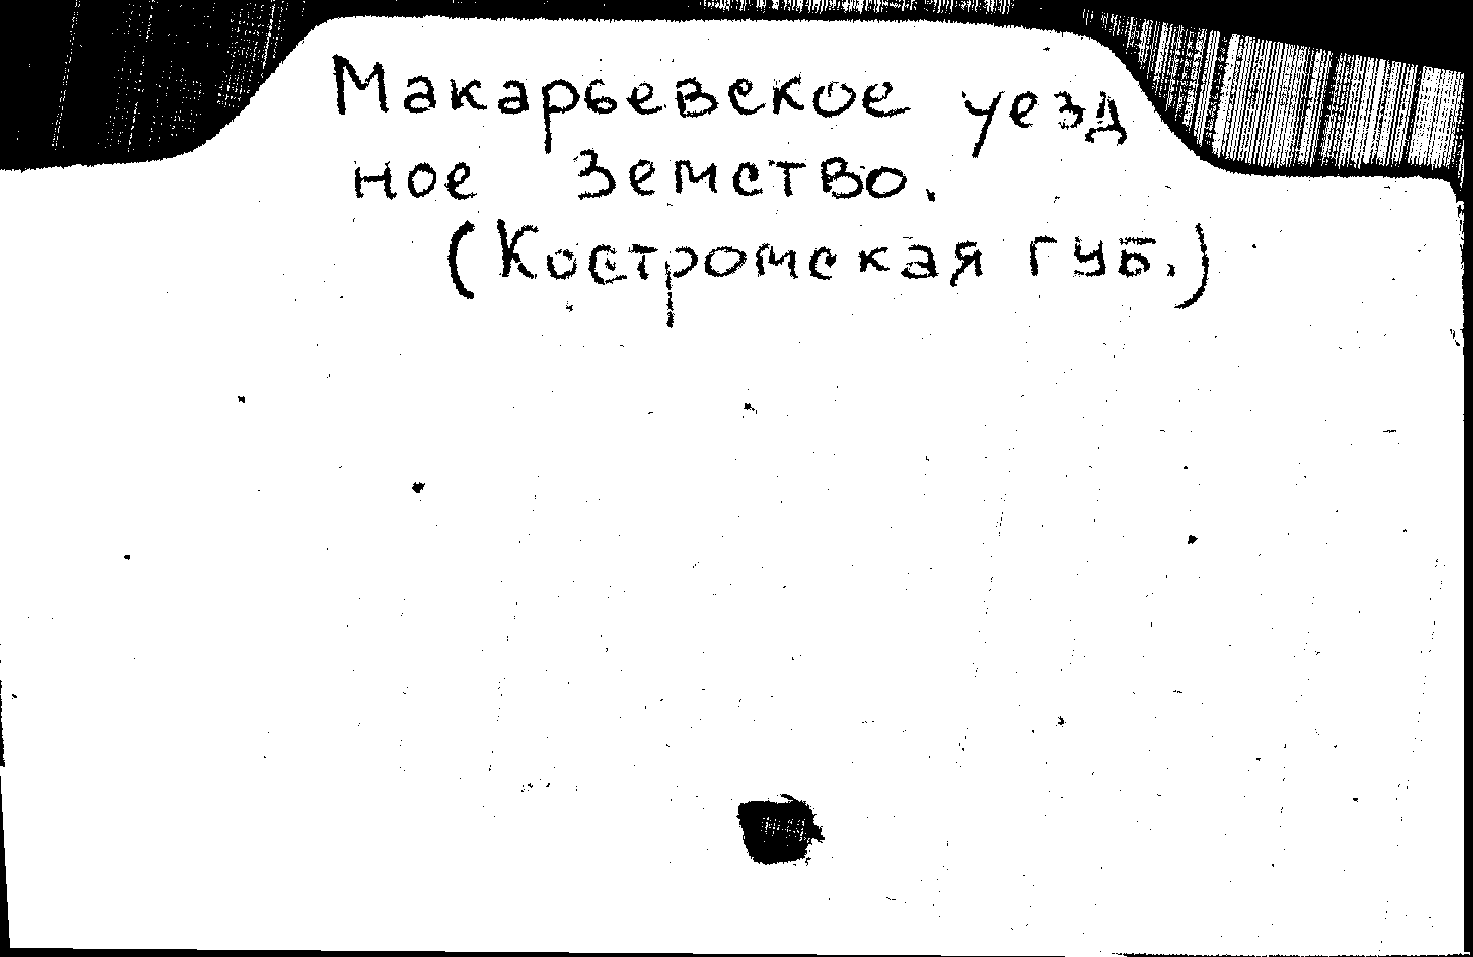 Макарьевское уезд
ное Земство.
(Костромская губ.)